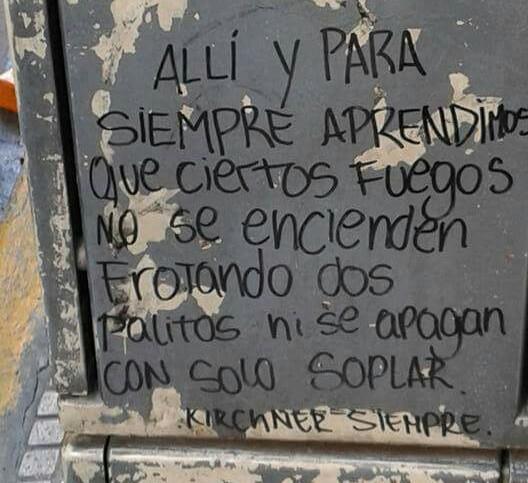 ALLÍ Y PARA
SIEMPRE APRENDIMOS
Que ciertos Fuegos
NO se encienden
Frotando dos
Palitos ni se apagan
CON SOLO SOPLAR.
KIRCHNER SIEMPRE.